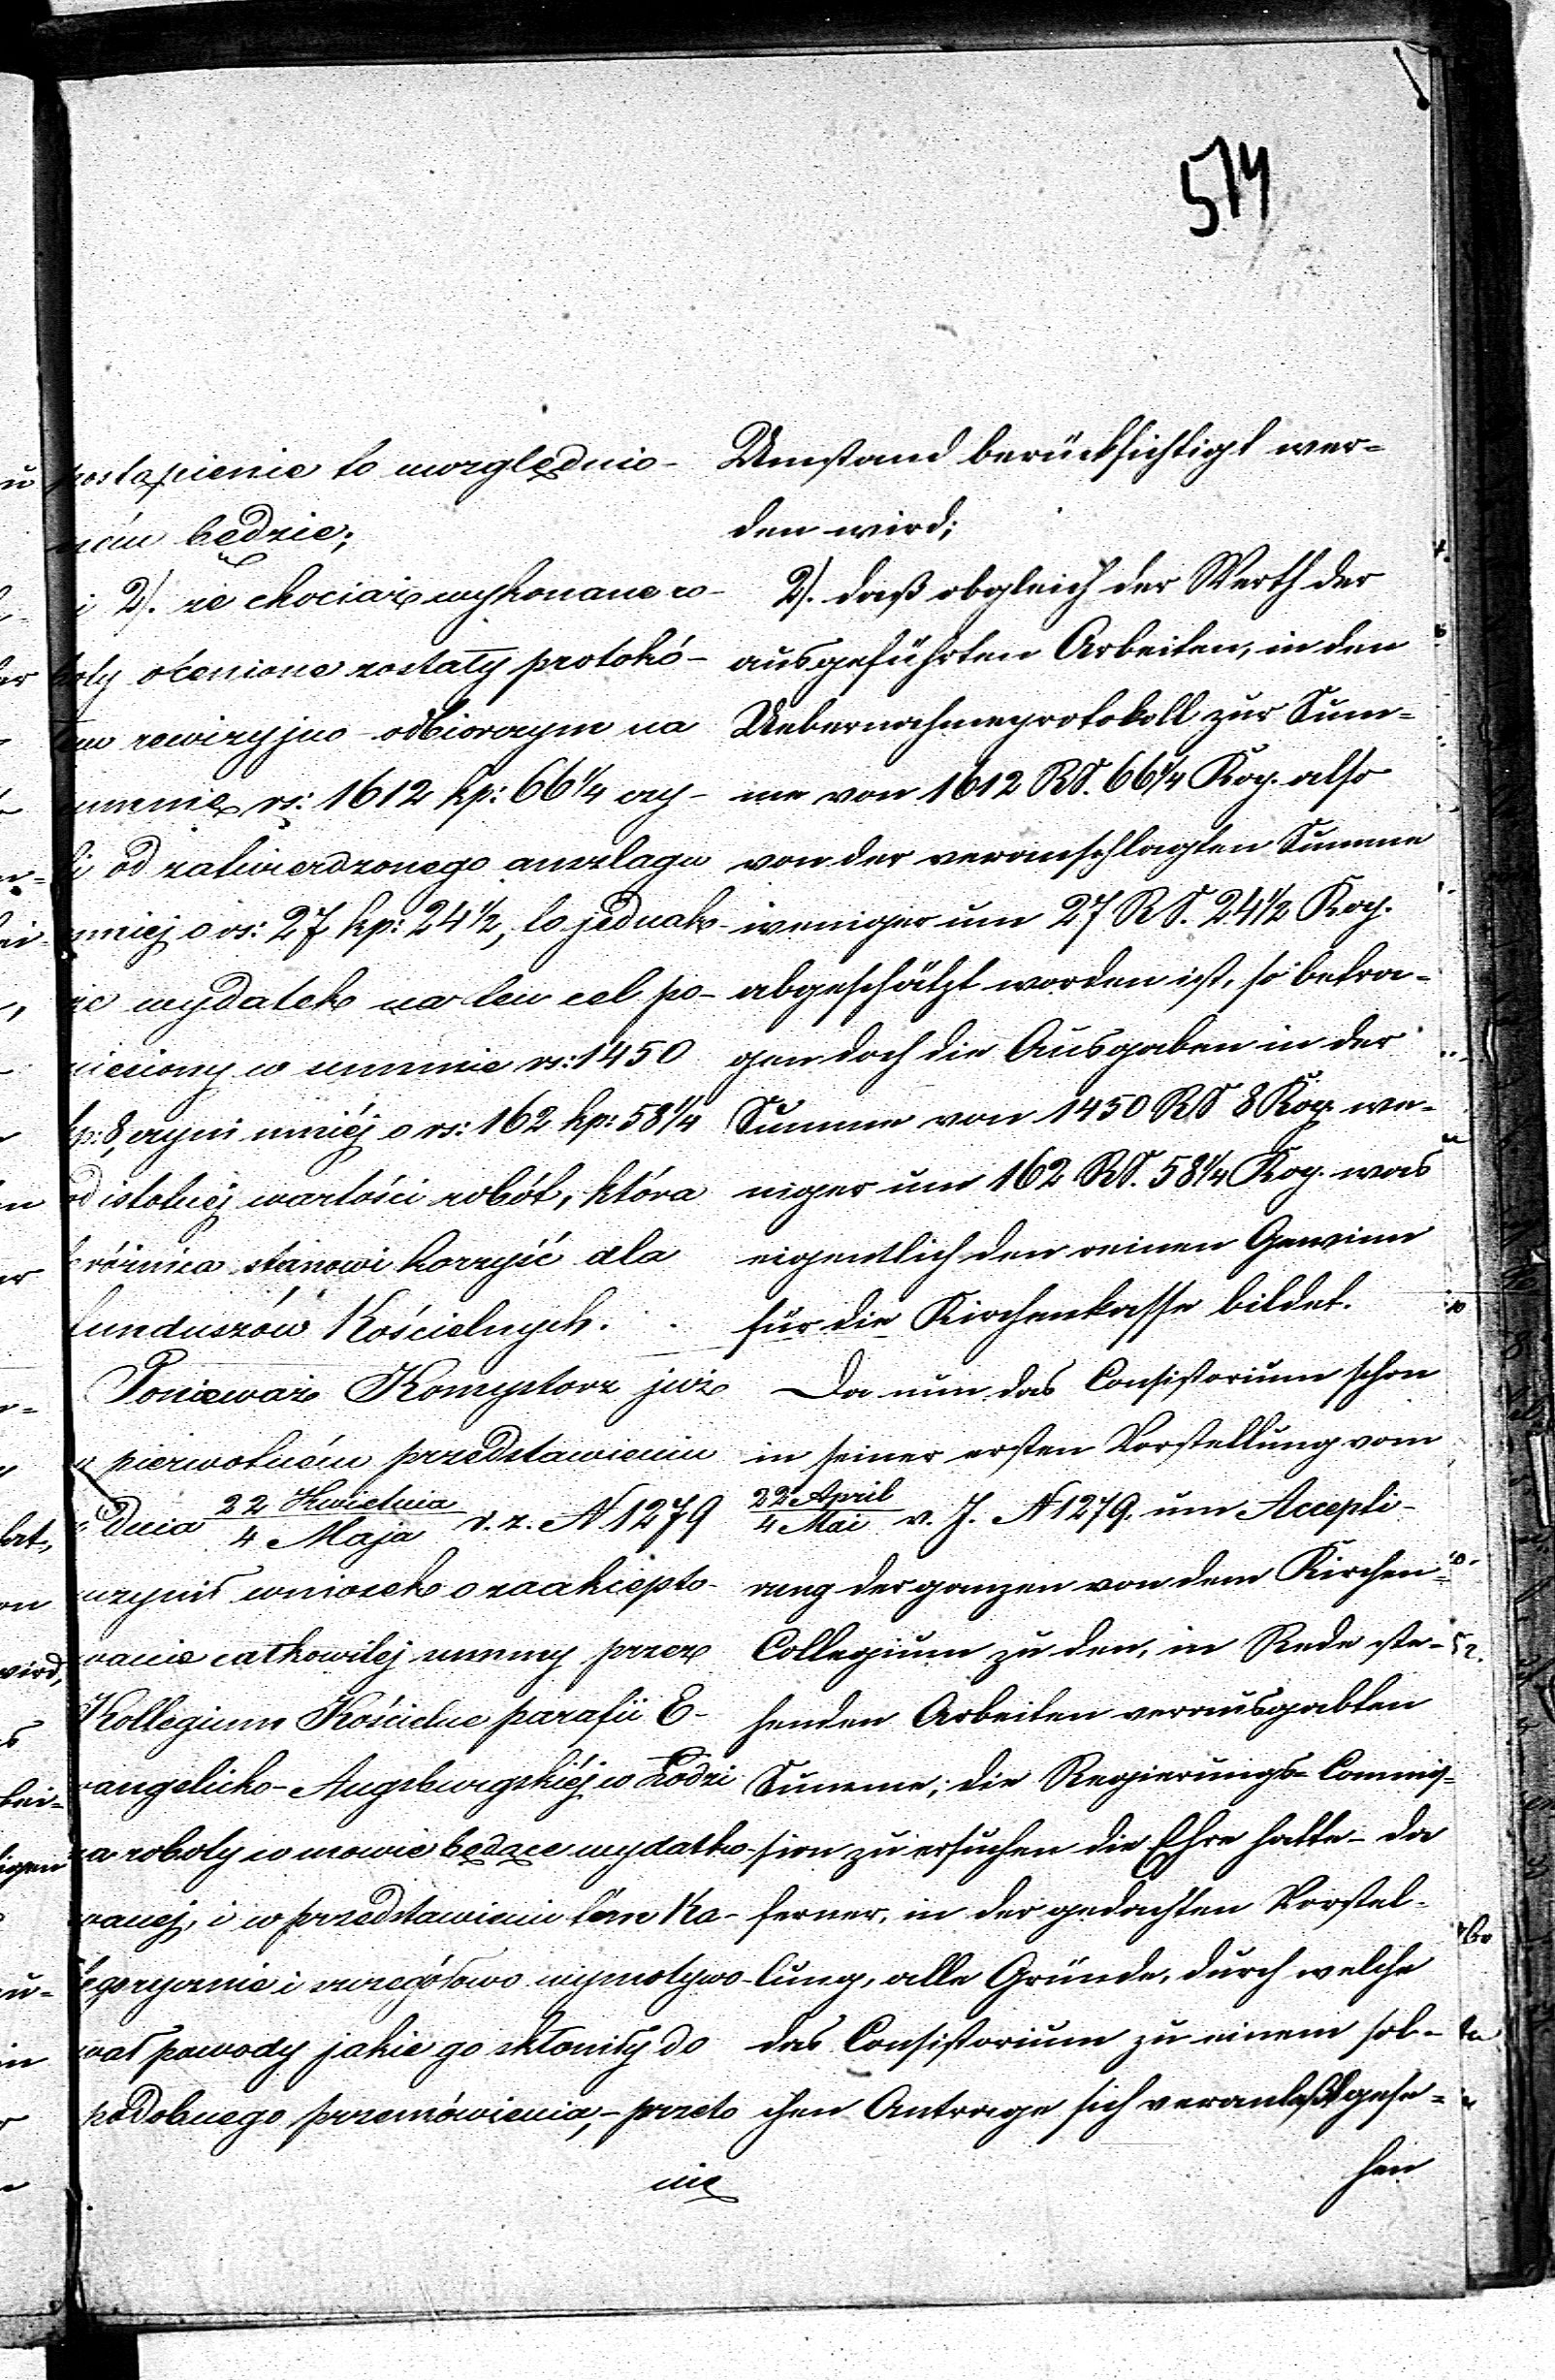 514
postąpienie to uwzględnio-
ném będzie;
i 2). że chociaż wykonane ro-
boty ocenione zostały protokó-
łem rewizyjno-odbiorczym na
summę rs: 1612 kp: 66 1/4 czy-
li od zatwierdzonego anszlagu
mniej o rs: 27 kp: 24 1/2, to jednak-
że wydatek na ten cel po-
niesiony w summie rs: 1450
kp: 8, czyni mniéj o rs: 162 kp: 58 1/4
od istotnéj wartości robót, która
różnica stanowi korzyść dla
funduszów Kościelnych.
Ponieważ Konsystorz już
w pierwotném przedstawieniu
z dnia 22 Kwietnia / 4 Maja r. z. N 1279
uczynił wniosek o zaakcepto-
wanie całkowitéj summy przez
Kollegium Kościelne parafii E-
wangelicko-Augsburgskiéj w Łodzi
na roboty w mowie będące wydatko-
wanej, i w przedstawieniu tém ka-
tegorycznie i szczegółowo wymotywo-
wał powody jakie go skłoniły do
podobnego przemówienia, - przeto
nie
Umstand berücksichtigt wer=
den wird;
2). daß obgleich der Werth der
ausgeführten Arbeiten, in den
Uebernahmeprotokoll zur Sum=
me von 1612 RS. 66 1/4 Kop. also
von der veranschlagten Summe
weniger um 27 RS. 24 1/2 Kop.
abgeschätzt worden ist, so betra=
gen doch die Ausgaben in der
Summe von 1450 RS 8 Kop. we-
niger um 162 RS. 58 1/4 Kop. was
eigentlich den reinen Gewinn
für die Kirchenkasse bildet.
Da nun das Consistorium schon
in seiner ersten Vorstellung vom
22 April / 4 Mai v. J. N 1279. um Accepti-
rung der ganzen von dem Kirchen=
Collegium zu den, in Rede ste-
henden Arbeiten verausgabten
Summe, die Regierungs=Commis=
sion zu ersuchen die Ehre hatte - da
ferner, in der gedachten Vorstel-
lung, alle Gründe, durch welche
das Consistorium zu einem sol-
chen Antrage sich veranlaßt gese=
hen